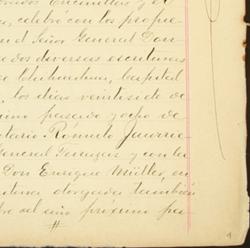 celebró con los propie
el Señor General Don
dos diversas escrituras
de Chihuahua, Capital
los dias veintiside de
pasado y ocho de
Romulo
General Terrazas y con los
Don Enrique Müller, en
otorgada tambien
del año próximo pa